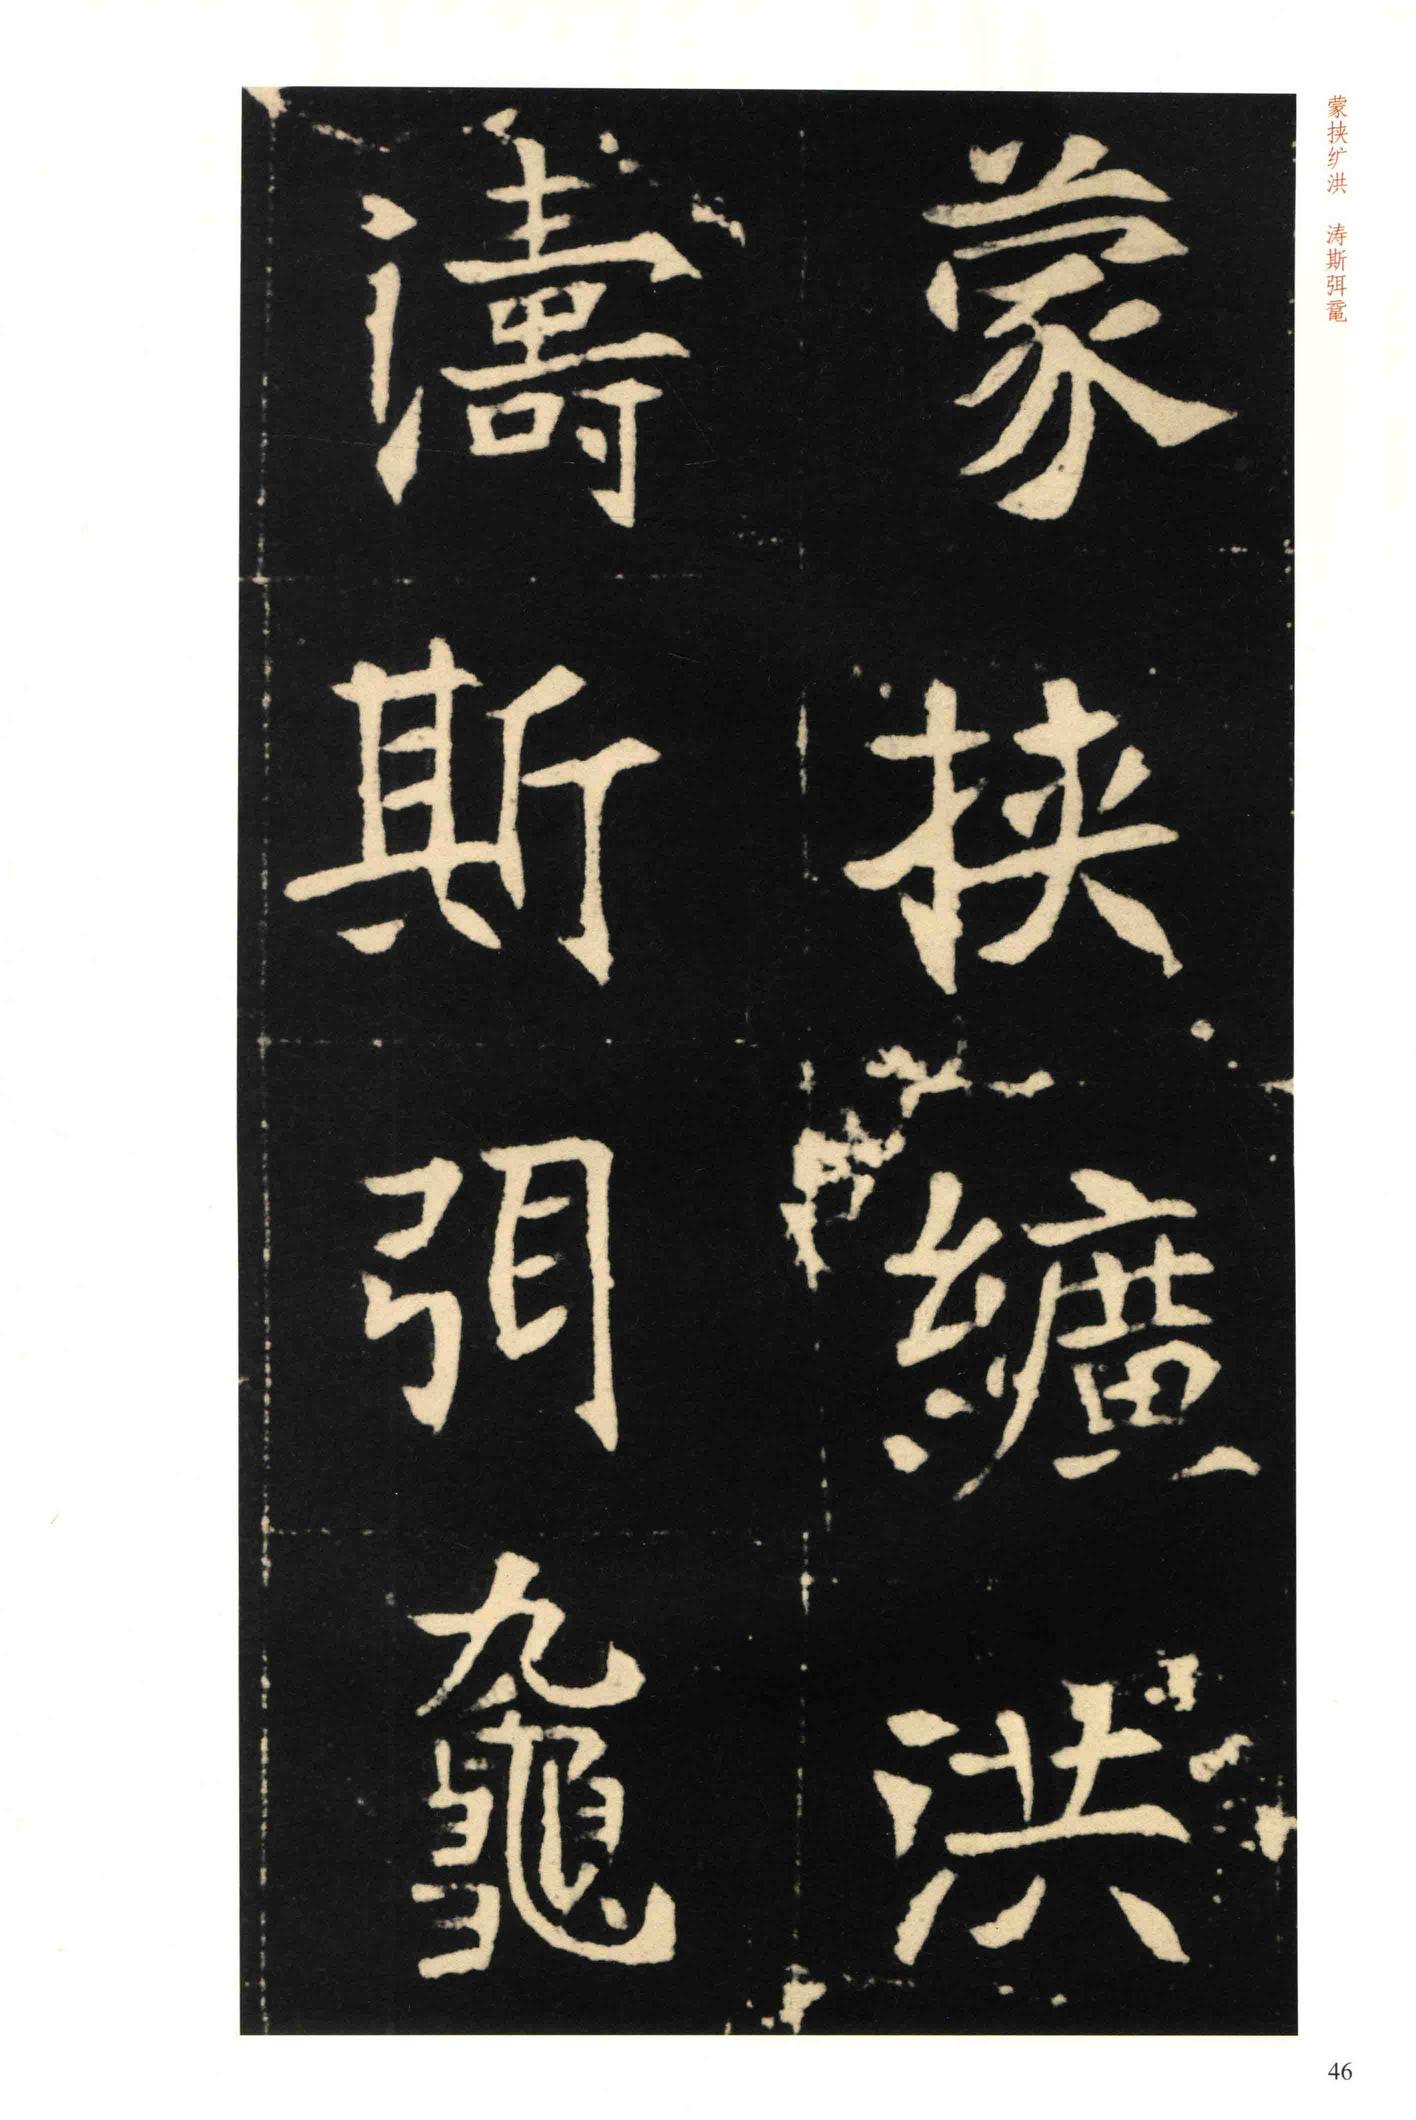 蒙挟纩洪　涛斯弭鼋
蒙挟纊洪
濤斯弭黿
46